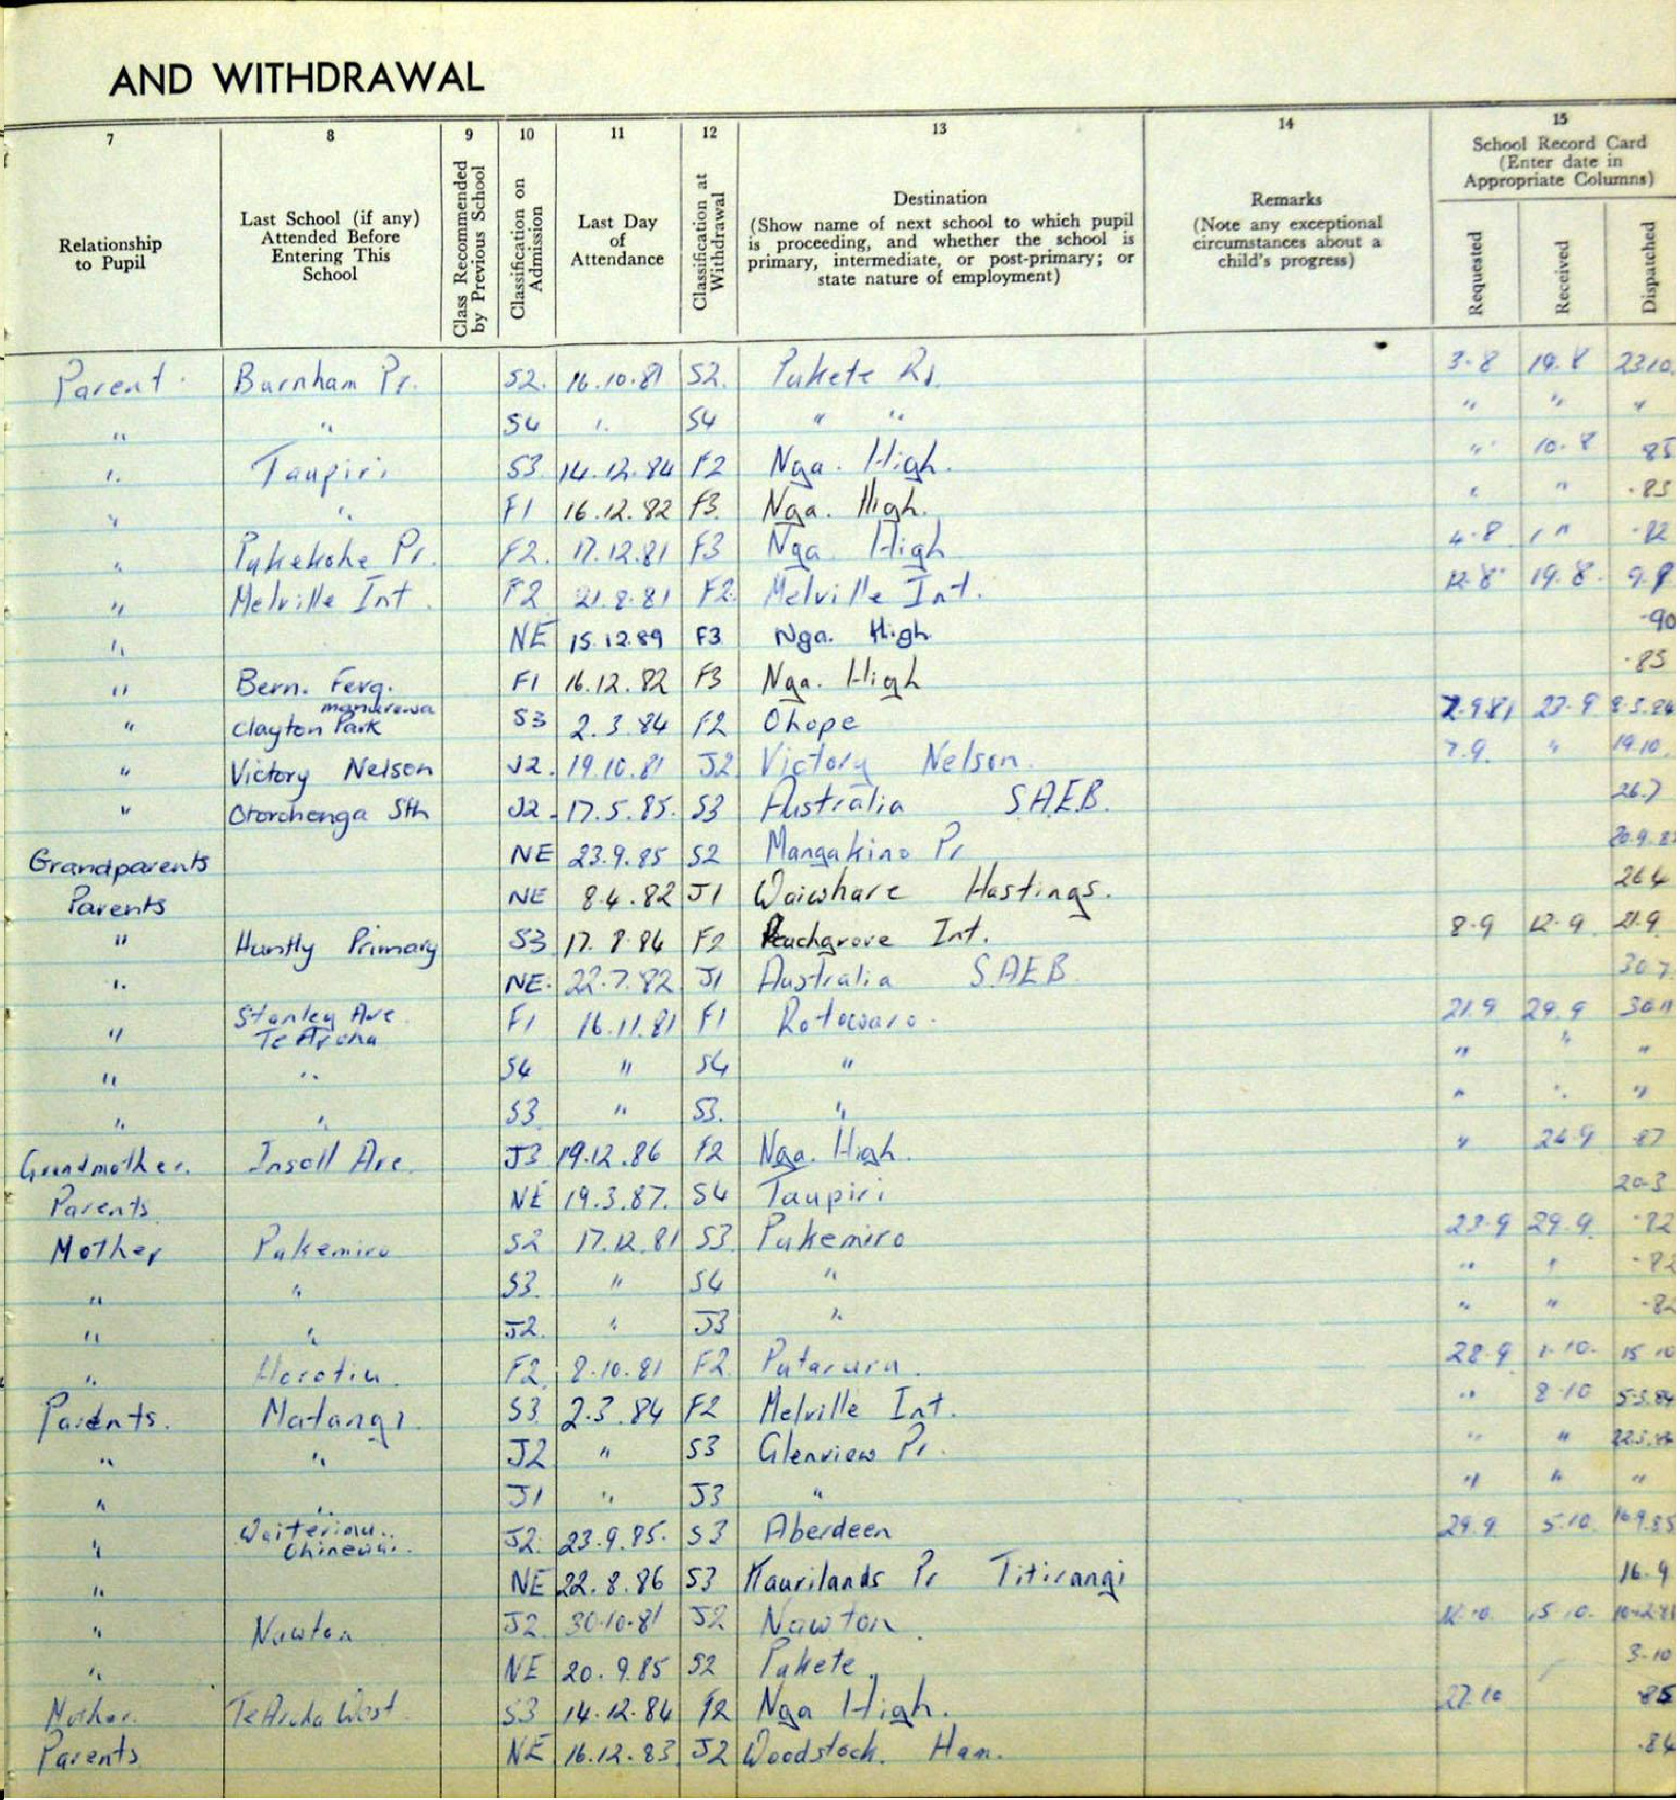 AND WITHDRAWAL
7 8 9 10 11 12 13 14 15
Relationship to Pupil
Last School (if any) Attended Before Entering This School
Class Recommended by Previous School
Classification on Admission
Last Day of Attendance
Classification at Withdrawal
Destination (Show name of next school to which pupil is proceeding, and whether the school is primary, intermediate, or post-primary; or state nature of employment)
Remarks (Note any exceptional circumstances about a child's progress)
School Record Card (Enter date in Appropriate Columns)
Requested Received Dispatched
Parent Burnham Pr. S2. 16.10.81 S2. Pukete Rd. 3-8 19.8 23.10.
" " S4 " S4 " " " " "
" Taupiri S3 14.12.84 F2 Nga. High. " 10.8 85
" " F1 16.12.82 F3 Nga. High. " " -83
" Pukekohe Pr. F2. 17.12.81 F3 Nga. High 4-8 " -82
" Melville Int. F2 21.8.81 F2. Melville Int. 12-8 19.8. 9.9
" NE 15.12.89 F3 Nga. High -90
" Bern. Ferg. F1 16.12.82 F3 Nga. High -85
" Clayton Park manurewa S3 2.3.84 F2 Ohope 7.9.81 23-9 8.3.84
" Victory Nelson J2. 19.10.81 J2 Victory Nelson. 7.9. " 19.10
" Otorohonga Sth J2. 17.5.85. S3 Australia S.A.E.B. 26.7
Grandparents NE 23.9.85 S2 Mangakino Pr
Parents NE 8.4.82 J1 Waiwhare Hastings. 26.4
" Huntly Primary S3 17.8.84 F2 Peachgrove Int. 8-9 12-9. 21.9
" NE. 22.7.82 J1 Australia S.A.E.B 30.7
" Stanley Ave. Te Aroha F1 16.11.81 F1 Rotowaro. 21.9 29.9 30.11
" " S4 " S4 " " " "
" " S3 " S3. " " " "
Grandmother. Insoll Ave. J3 19.12.86 F2 Nga. High. " 24.9 87
Parents NE 19.3.87. S4 Taupiri 20.3
Mother Pukemiro S2 17.12.81 S3. Pukemiro 23.9 29.9. -82
" " S3. " S4 " " " -82
" " J2. " J3 " " " -82
" Horotiu. F2. 8.10.81 F2. Putaruru. 28.9 1.10. 15.10
Parents. Matangi. S3 2.3.84 F2 Melville Int. " 8.10 5.3.84
" " J2 " S3 Glenview Pr. " "
" " J1 " J3 " " " "
" Waiterimu.. Ohinewai. J2. 23.9.85. S3 Aberdeen 29.9 5.10. 16.9.85
" NE 22.8.86 S3 Kaurilands Pr Titirangi 16.9
" Nawton J2. 30.10.81 J2 Nawton. 12.10. 15.10.
" NE 20.9.85 S2 Pukete. 3-10
Mother. Te Aroha West. S3 14.12.84 F2 Nga High. 27.10 85
Parents NE 16.12.83 J2 Woodstock. Ham. .84